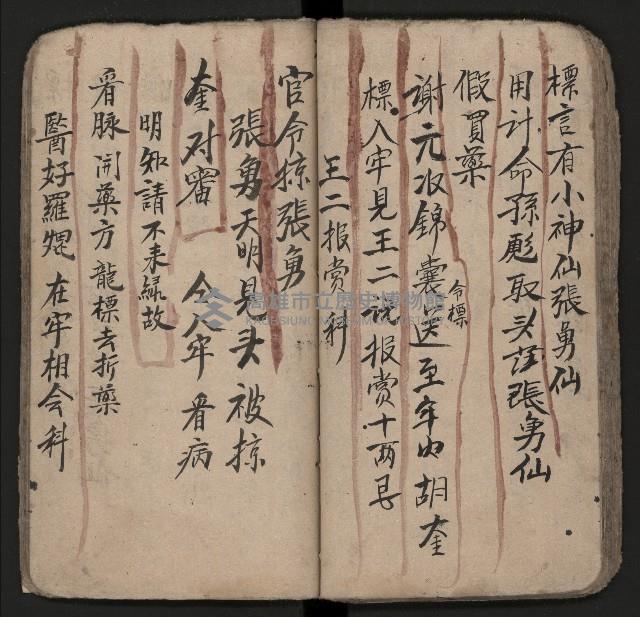 標言有小神仙張勇仙
用計命孫彪取头誆張勇仙
假買藥
謝元收錦囊送至牢內胡奎
令標
標入牢見王二説报賞十两艮
王二报賞科
官令掠張勇
張勇天明見头被掠
奎对審 令入牢看病
明知請不来緑故
看脉開藥方龍標去折藥
醫好羅焜在牢相会科
高雄市立歷史博物館
KAOHSIUNG MUSEUM OF HISTORY